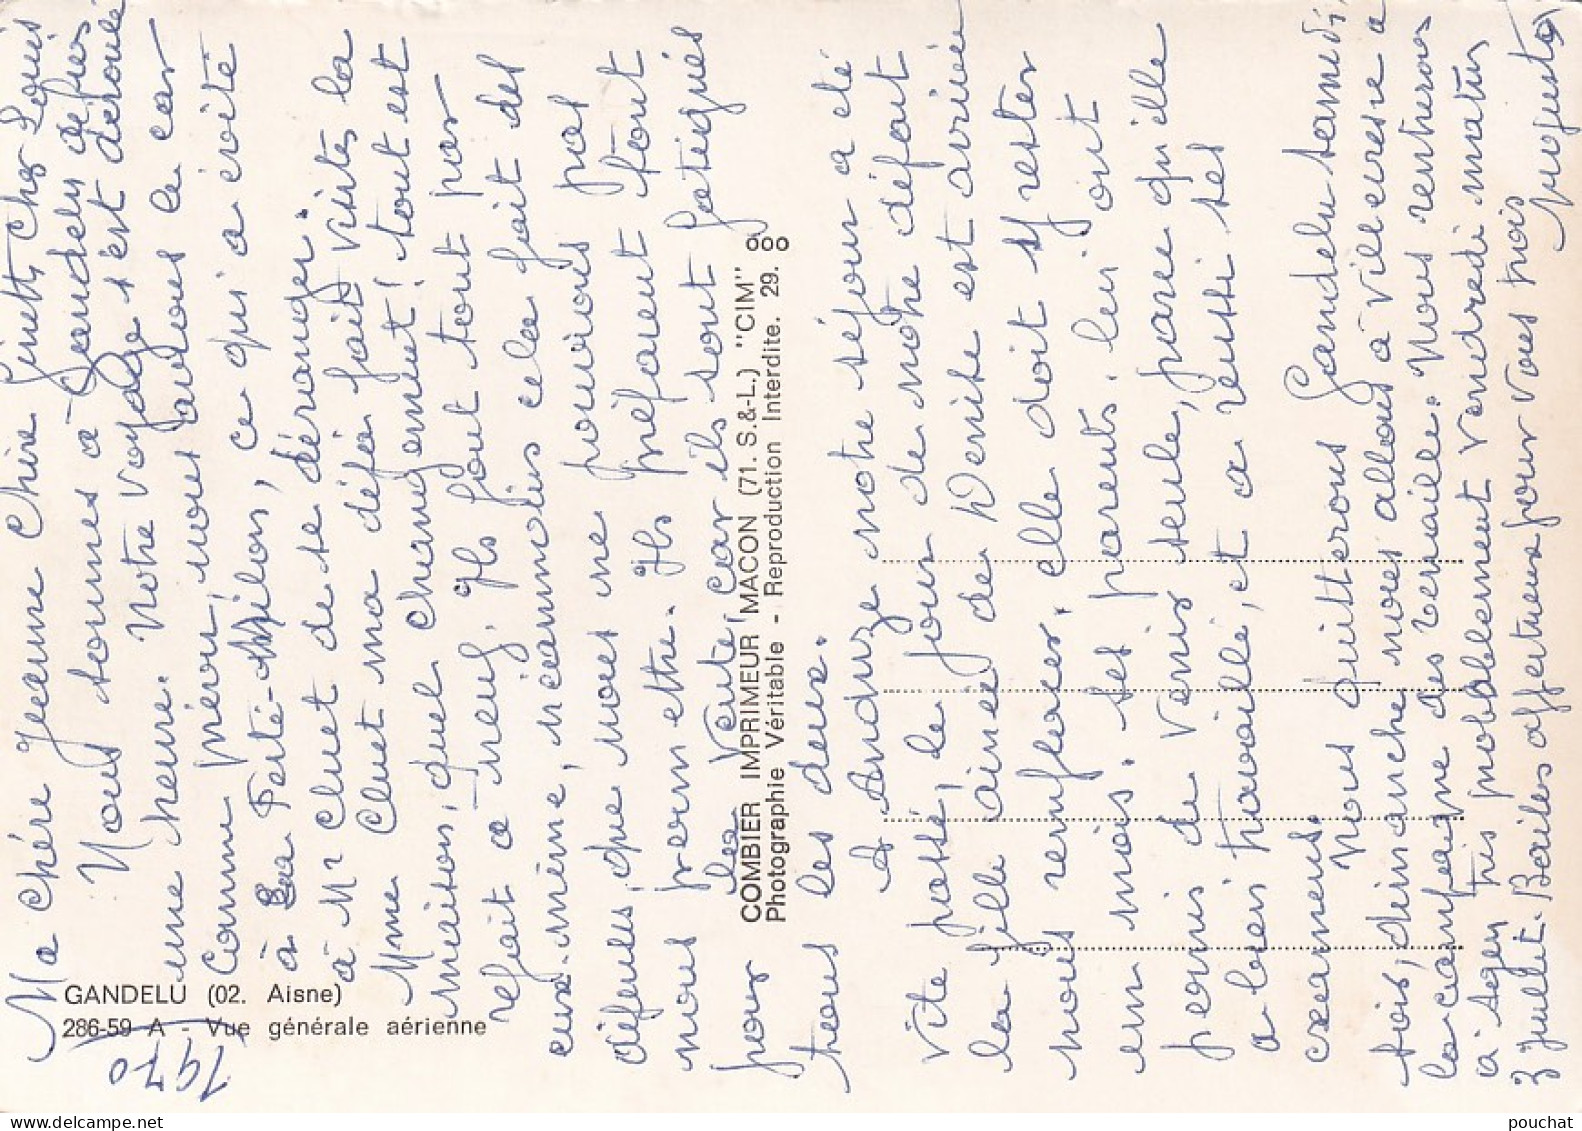 Ma chère Jeanne Chère Ginette, Cher Louis
Nous sommes à Gandelu depuis
une heure. Notre voyage s'est déroulé
comme prévu, nous avions le car
à La Ferté-Milon, ce qui a évité
à Mr Cluet de se déranger.
Mme Cluet m'a déjà fait visiter la
maison, quel changement! tout est
refait à neuf. Ils font tout par
eux-même, néanmoins cela fait des
dépenses, que nous ne pouvions pas
nous permettre. Ils préparent tout
pour la vente, car ils sont fatigués
tous les deux.
A Andouze notre séjour a été
vite passé, le jour de notre départ
la fille aînée de Denise est arrivée
nous remplacer, elle doit y rester
un mois. Ses parents lui ont
permis de venir seule, parce qu'elle
a bien travaillé, et a réussi ses
examens.
Nous quitterons Gandelu samedi,
dimanche nous allons à Villecresne à
la campagne des Versaille. Nous rentrerons
à Agen très probablement vendredi matin
3 juillet. Baisers affectueux pour vous trois
GANDELU (02. Aisne)
286-59 A - Vue générale aérienne
1970
COMBIER IMPRIMEUR MACON (71. S.&-L.) "CIM"
Photographie Véritable - Reproduction Interdite. 29.
pouchat